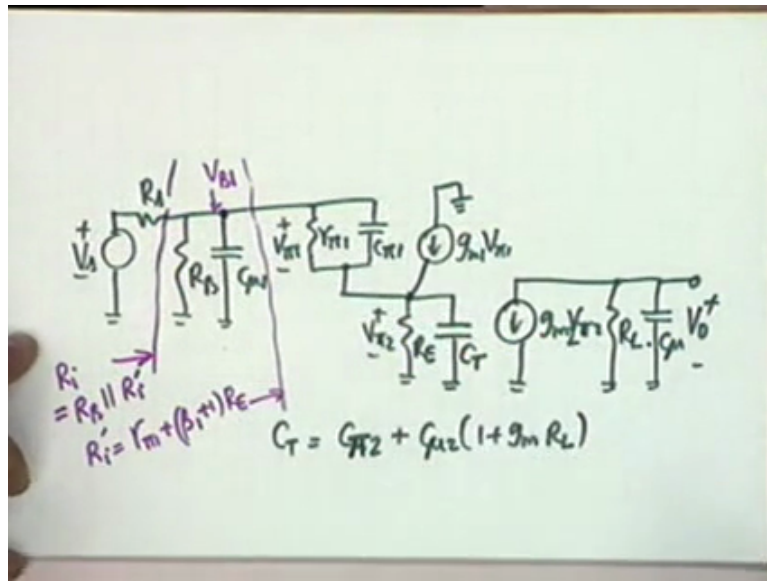 V_B1
R_s
+
V_s
-
R_B
C_μ1
+
V_π1
-
r_π1
C_π1
g_m1 V_π1
+
V_π2
-
R_E
C_T
g_m2 V_π2
R_L
C_μ
+
V_o
-
R_i
= R_B || R_i'
R_i' = r_π1 + (β_1+1) R_E
C_T = C_π2 + C_μ2 (1 + g_m R_L)